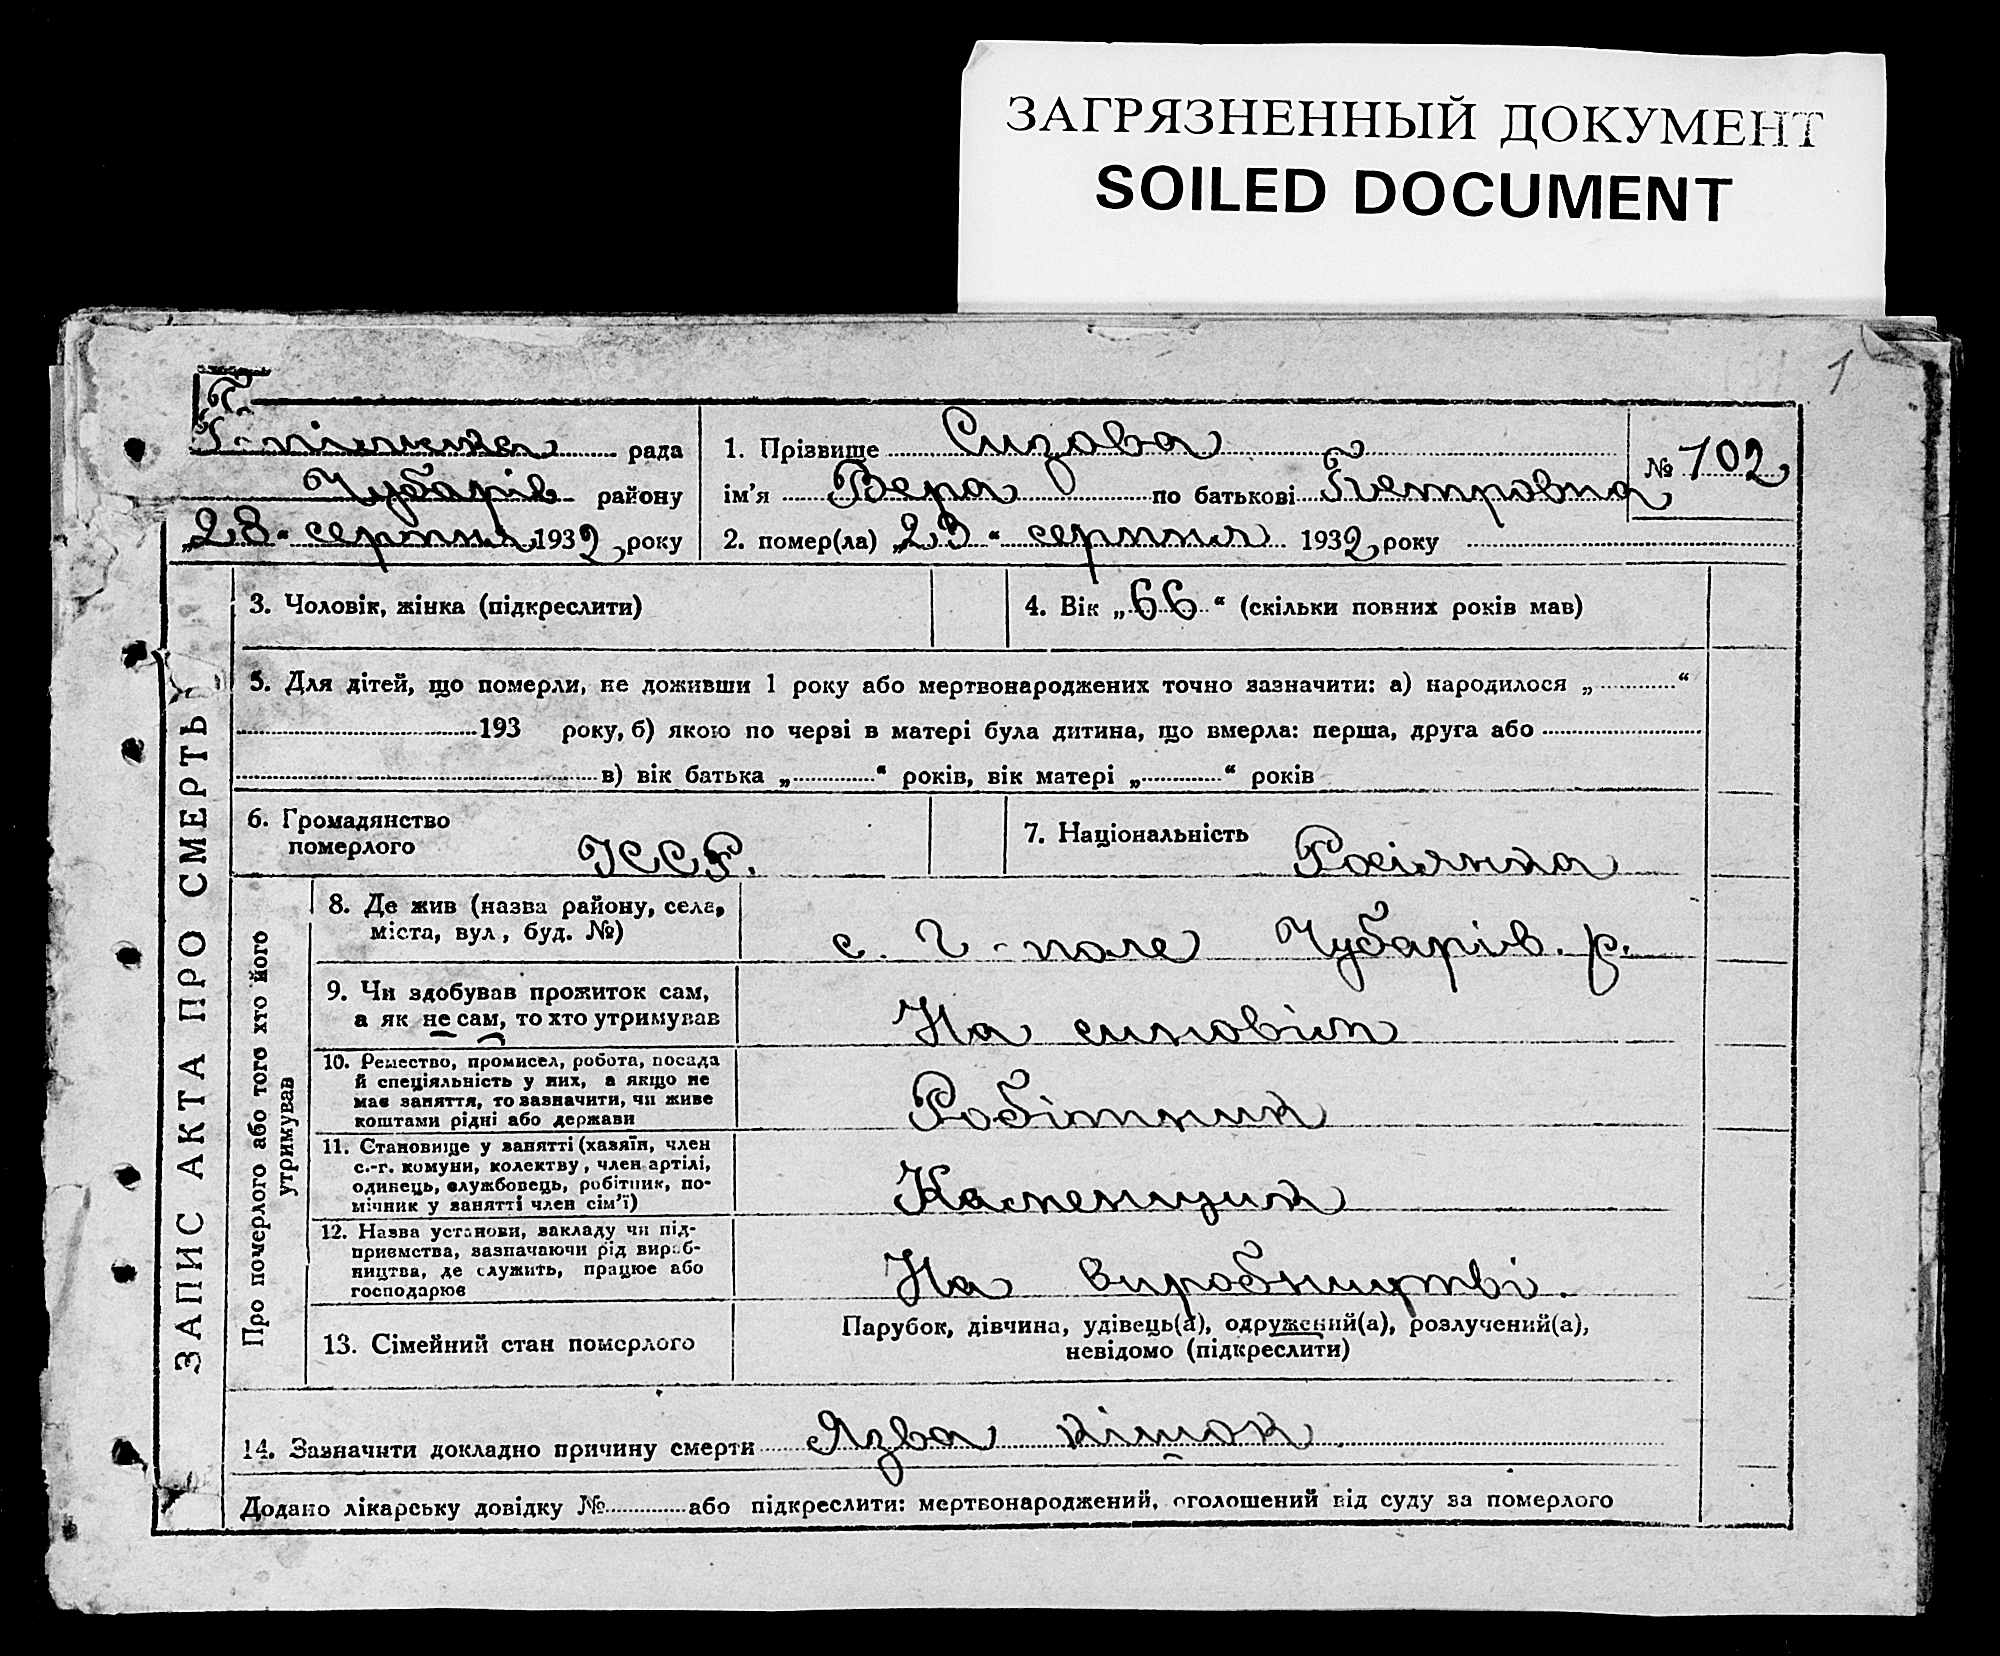 ЗАГРЯЗНЕННЫЙ ДОКУМЕНТ
SOILED DOCUMENT
1
Г-пільська рада
Чубарів району
„28“ серпня 1932 року
1. Прізвище Сизова
ім'я Вера по батькові Петровна
№ 102
2. помер(ла) „23“ серпня 1932 року
ЗАПИС АКТА ПРО СМЕРТЬ
3. Чоловік, жінка (підкреслити)
4. Вік „66“ (скільки повних років мав)
5. Для дітей, що померли, не доживши 1 року або мертвонароджених точно зазначити: а) народилося „ “
193 року, б) якою по черзі в матері була дитина, що вмерла: перша, друга або
в) вік батька „ “ років, вік матері „ “ років
6. Громадянство
померлого УССР.
7. Національність Росіянка
Про померлого або того хто його
утримував
8. Де жив (назва району, села,
міста, вул, буд. №)
с. Г-поле Чубарів. р.
9. Чи здобував прожиток сам,
а як не сам, то хто утримував
На
10. Ремество, промисел, робота, посада
й спеціяльність у них, а якщо не
має заняття, то зазначити, чи живе
коштами рідні або держави
Робітник
11. Становище у занятті (хазяїн, член
с.-г. комуни, колектву, член артілі,
одинець, службовець, робітник, по-
мічник у занятті член сім'ї)
Каменщик
12. Назва установи, закладу чи під-
приємства, зазначаючи рід вироб-
ництва, де служить, працює або
господарює
На виробництві.
13. Сімейний стан померлого
Парубок, дівчина, удівець(а), одружений(а), розлучений(а),
невідомо (підкреслити)
14. Зазначити докладно причину смерти Язва кішок
Додано лікарську довідку № або підкреслити: мертвонароджений, оголошений від суду за померлого